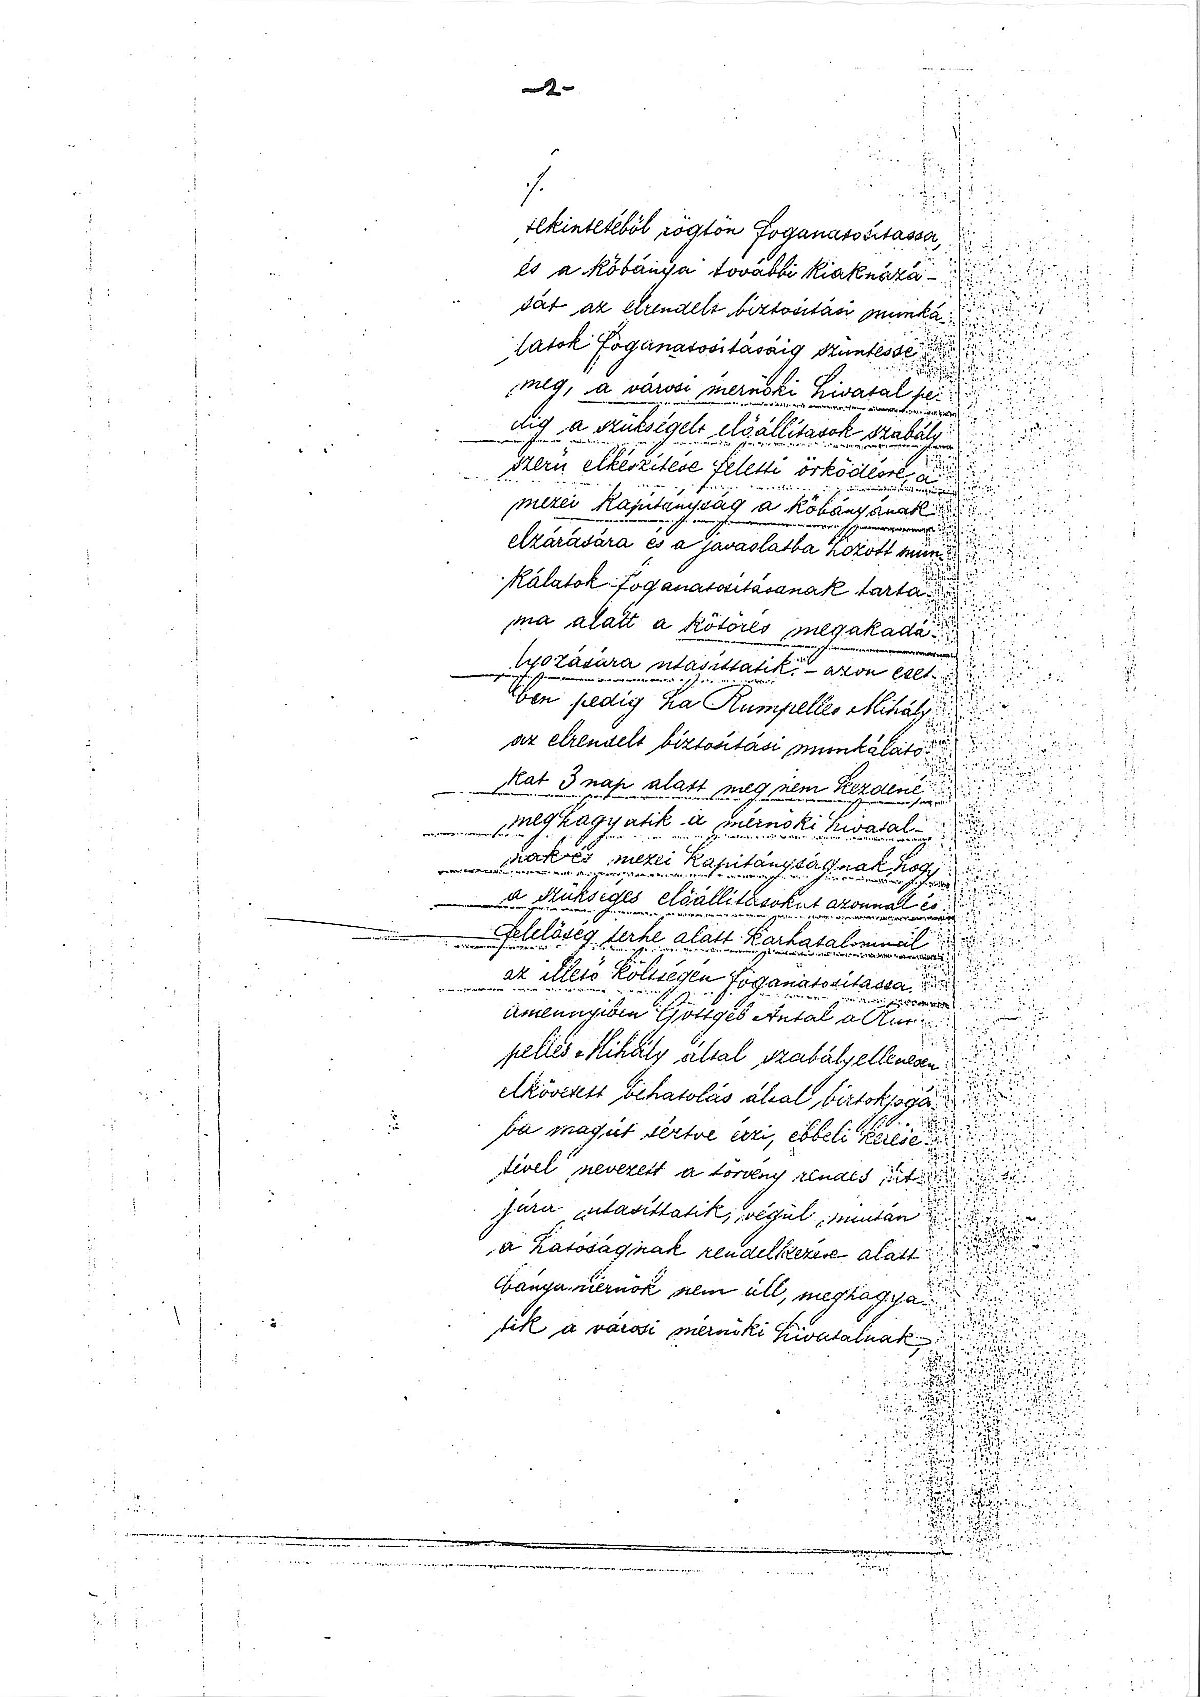 -2-
./.
tekintetéből rögtön foganatositassa,
és a kőbánya további kiaknázá-
sát az elrendelt biztositási munká-
latok foganatositásáig szüntesse
meg, a városi mérnöki hivatal pe-
dig a szükségelt előállitások szabály
szerü elkészitése feletti őrködésre, a
mezei kapitányság a kőbányának
elzárására és a javaslatba hozott mun-
kálatok foganatositásanak tarta-
ma alatt a kőtörés megakadá-
lyozására utasittatik. - azon eset-
ben pedig ha Rumpelles Mihály
az elrendelt biztositási munkálato-
kat 3 nap alatt meg nem kezdené,
meghagyatik a mérnöki hivatal-
nak és mezei kapitányságnak, hogy
a szükséges előállitásokat azonnal és
felelőség terhe alatt karhatalommal
az illető költségén foganatositassa,
amennyiben Gottgeb Antal a Rum-
pelles Mihály által szabályellenesen
elkövetett behatolás által birtokjogá-
ba magát sértve érzi, ebbeli kérésé-
tivel nevezett a törvény rendes út-
jára utasittatik, végül miután
a hatóságnak rendelkezése alatt
bányamérnök nem áll, meghagya-
tik a városi mérnöki hivatalnak,